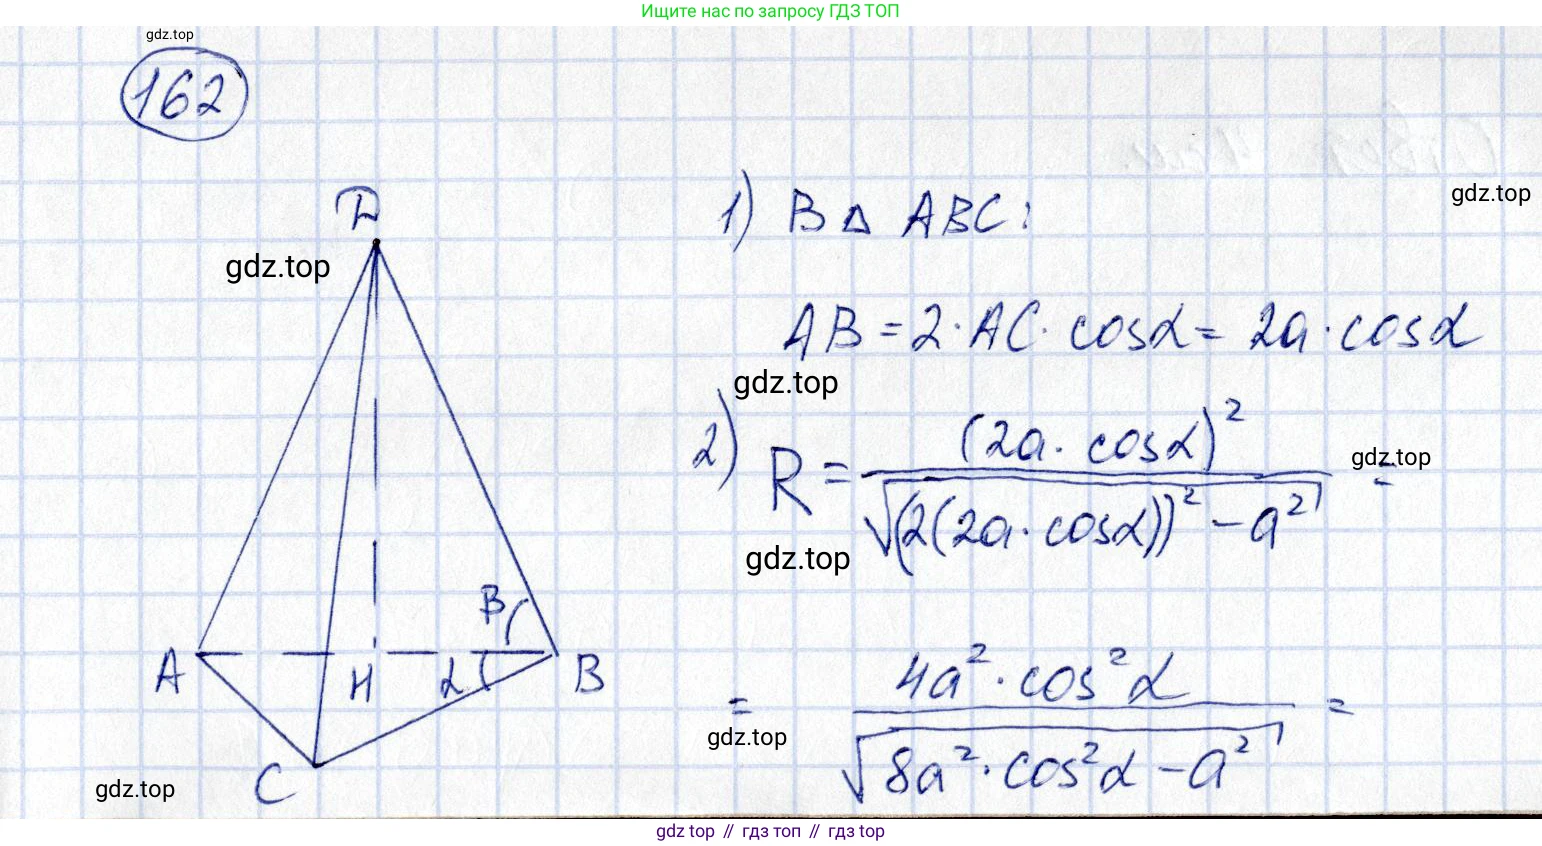 Ищите нас по запросу ГДЗ ТОП
gdz.top
162
gdz.top
D
1) В △ ABC:
gdz.top
AB = 2·AC·cosα = 2a·cosα
gdz.top
2) R = (2a·cosα)² / √(2(2a·cosα))² - a² =
gdz.top
gdz.top
β
A H α B
= 4a²·cos²α / √8a²·cos²α - a² =
gdz.top
C
gdz.top
gdz top // гдз топ // гдз top